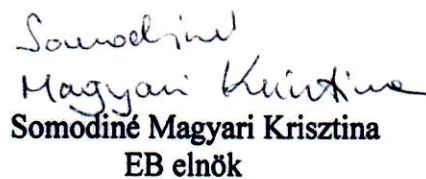 Somodiné
Magyari Krisztina
Somodiné Magyari Krisztina
EB elnök